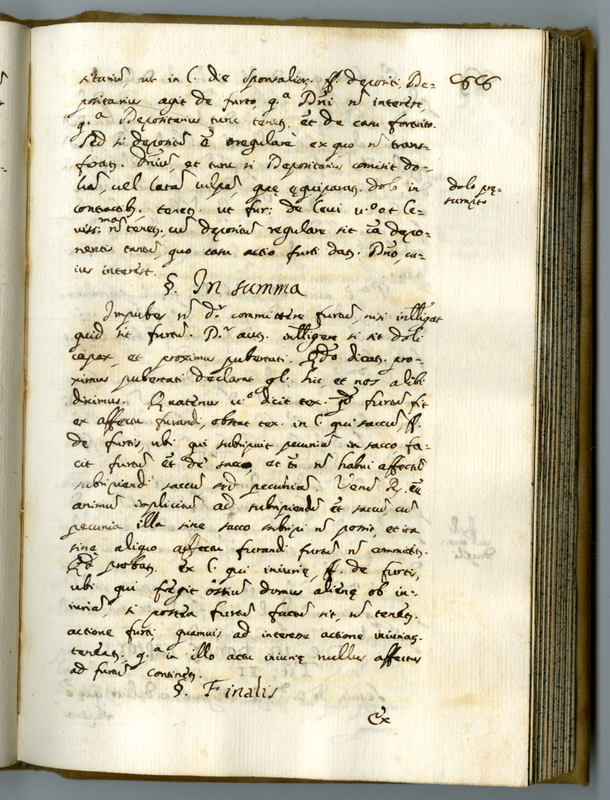 sitariũ, ut in l. die sponsaliorũ ff. depositi, De-
positarius agit de furto, q.ᵃ Dñi nõ interest,
q.ᵃ Depositarius tunc tenetʳ. et de casu fortuito.
Sed si depositũ ẽ irregulare ex quo nõ trans-
fertʳ. Dniũ, et tunc si Depositarius comisit do-
lum, vel latam culpam, que equiparatʳ. dolo in
contractibʒ. tenetʳ. ut fur: de levi v.º et le-
vissimaᵐ nõ tenetʳ. cũ depositũ regulare sit cã depo-
nentis tantũ, quo casu actio furti datʳ. Dño, cu-
ius interest.
dolo pre-
sumpto
§. In summa
Impubes nõ dʳ. committere furtũ, nisi intelligat
quid sit furtũ. Dʳ. autẽ intelligere si sit doli
capax, et proximus pubertati. Qñdo dicatʳ. pro-
ximus pubertati declarat gl. hic et nos alibi
diximus. Quatenus v.º dicit tex. furtũ fit
ex affectu furandi, obstat tex. in l. qui saccũ, ff.
de furtis ubi qui subripuit pecuniã in sacco fa-
cit furtũ et de sacco et tñ nõ habuit affectũ
subripiendi saccũ sed pecuniã. Verũ R. eũ
animũ implicitũ ad subripiendũ et saccũ, cũ
pecunia illa sine sacco subripi nõ possit, et ita
sine aliquo affectu furandi furtũ nõ committitʳ.
Qd probatʳ. Ex l. qui iniurie, ff. de furtis,
ubi qui fregit ostiũ domus aliene ob in-
iuriã, si postea furtũ factũ sit, nõ tenetʳ.
actione furti quamvis ad interesse actione iniuriarʳ.
teneatʳ. q.ᵃ in illo actu iniurie nullus affectus
ad furtũ continetʳ.
§. Finalis
Ex